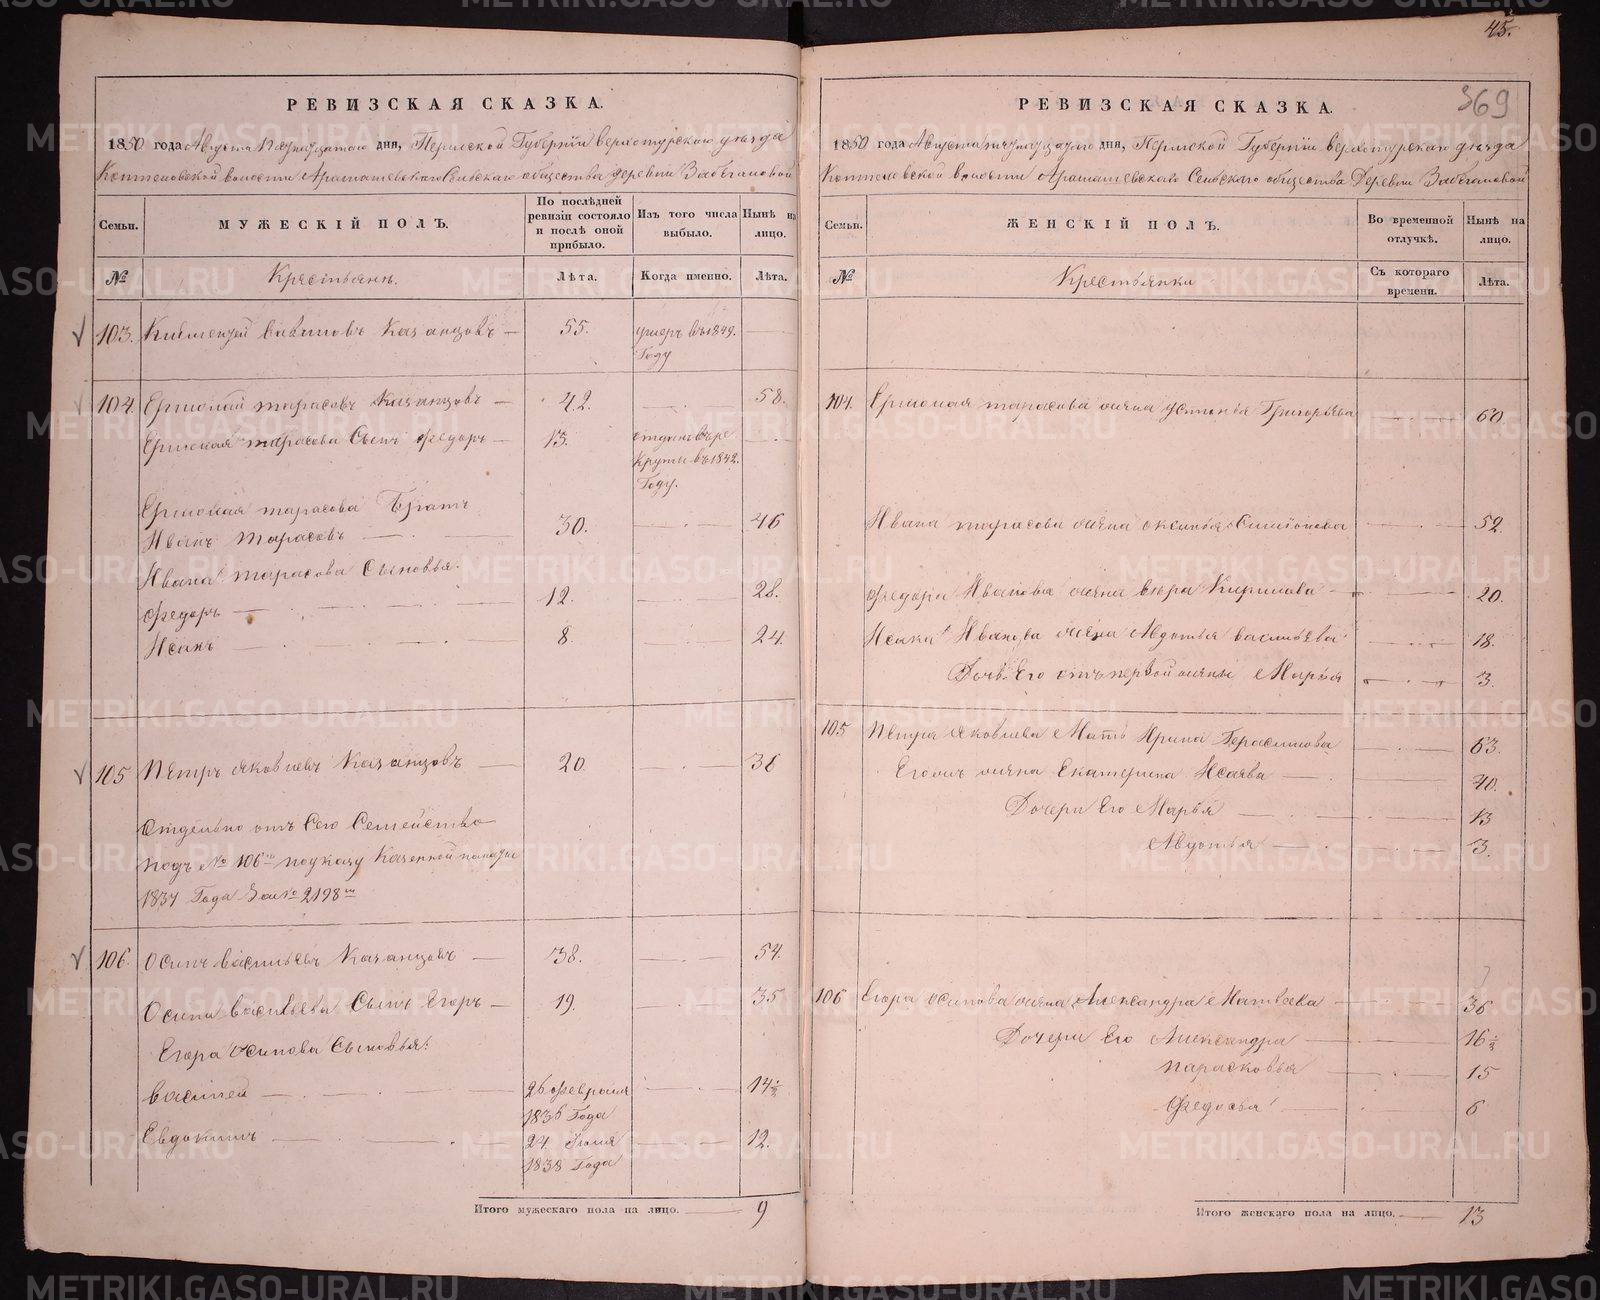 45.
369
РЕВИЗСКАЯ СКАЗКА.
1850 года Августа дня, Пермской Губернии Верхотурскаго уезда
волости Арамашевскаго Сельскаго общества деревни
Семьи. МУЖЕСКІЙ ПОЛЪ. По послѣдней ревизіи состояло и послѣ оной прибыло. Изъ того числа выбыло. Нынѣ на лицо.
№ Крестьяне. Лѣта. Когда именно. Лѣта.
103. Казанцовъ 55. умеръ въ 1849. Году
104. Ермолай Тарасовъ Казанцовъ 42. 58.
Ермолая Тарасова Сынъ Федоръ 13. въ 1842. Году.
Ермолая Тарасова Братъ
Иванъ Тарасовъ 30. 46
Ивана Тарасова Сыновья.
Федоръ 12. 28.
Исакъ 8. 24.
105 Петръ Яковлевъ Казанцовъ 20. 36
Отдельно отъ Сего Семейства
подъ № 106 по указу Казенной палаты
1837 Года За № 2198
106. Осипъ Васильевъ Казанцовъ 38. 54.
Осипа Васильева Сынъ Егоръ 19. 35
Егора Осипова Сыновья:
Василей 26 Февраля 1836 Года 14½
Евдокимъ 24 Июля 1838 Года 12.
Итого мужескаго пола на лицо. 9
РЕВИЗСКАЯ СКАЗКА.
1850 года Августа дня, Пермской Губернии Верхотурскаго уезда
волости Арамашевскаго Сельскаго общества Деревни
Семьи. ЖЕНСКІЙ ПОЛЪ. Во временной отлучкѣ. Нынѣ на лицо.
№ Крестьянки Съ котораго времени. Лѣта.
104. Ермолая Тарасова жена Устинья Григорьева 60.
Ивана Тарасова жена Оксинья Симионова 52.
Федора Иванова жена Вера Кирилова 20.
Исака Иванова жена Авдотья Васильева 18.
Дочь Его отъ первой жены Марья 3.
105 Петра Яковлева Мать Ирина Герасимова 63.
Его жена Екатерина Исаева 40.
Дочери Его Марья 13
Авдотья 3.
106 Егора Осипова жена Александра Матвеева 36
Дочери Его Александра 16½
Парасковья 15
Федосья 6
Итого женскаго пола на лицо. 13
METRIKI.GASO-URAL.RU